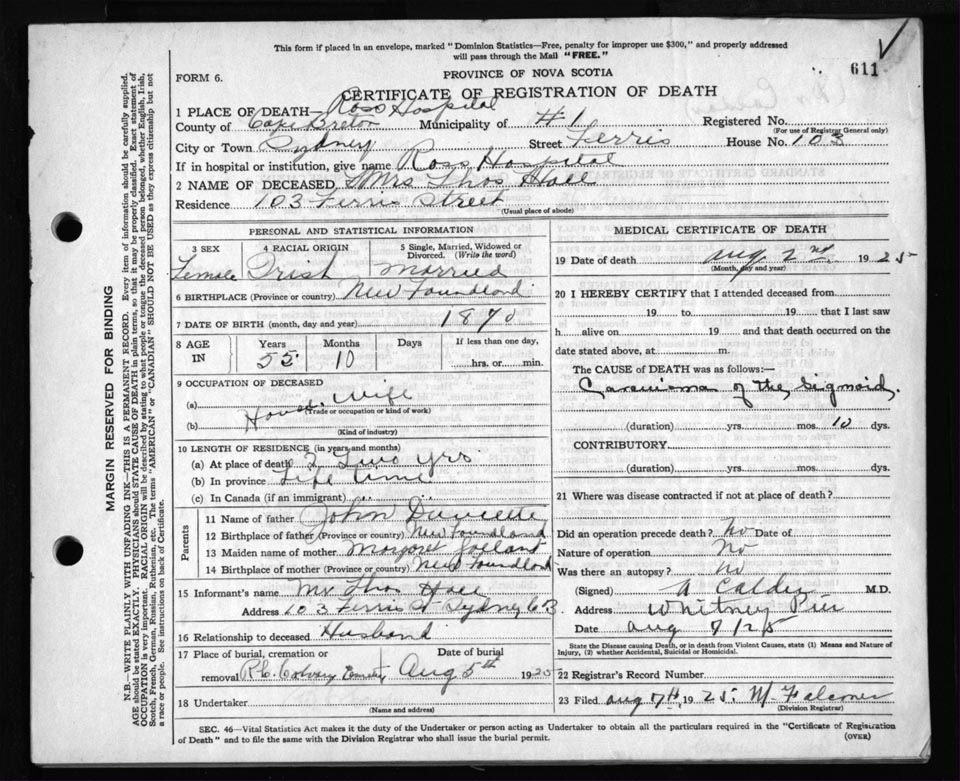 This form if placed in an envelope, marked "Dominion Statistics—Free, penalty for improper use $300," and properly addressed
will pass through the Mail "FREE."
611
FORM 6.
PROVINCE OF NOVA SCOTIA
CERTIFICATE OF REGISTRATION OF DEATH
1 PLACE OF DEATH— Ross Hospital
County of Cape Breton Municipality of #1 Registered No.
(For use of Registrar General only)
City or Town Sydney Street Ferris House No. 103
If in hospital or institution, give name Ross Hospital
2 NAME OF DECEASED Mrs Thos Hall
Residence 103 Ferris Street
(Usual place of abode)
PERSONAL AND STATISTICAL INFORMATION
3 SEX 4 RACIAL ORIGIN 5 Single, Married, Widowed or Divorced. (Write the word)
Female Irish Married
6 BIRTHPLACE (Province or country) New Foundland
7 DATE OF BIRTH (month, day and year) 1870
8 AGE IN Years Months Days If less than one day,
55 10 hrs. or min.
9 OCCUPATION OF DECEASED
(a) House Wife
(Trade or occupation or kind of work)
(b)
(Kind of industry)
10 LENGTH OF RESIDENCE (in years and months)
(a) At place of death 2 Two yrs
(b) In province Life time
(c) In Canada (if an immigrant)
Parents
11 Name of father John
12 Birthplace of father (Province or country) New Foundland
13 Maiden name of mother Margaret
14 Birthplace of mother (Province or country) New Foundland
15 Informant's name Mr Thos Hall
Address 103 Ferris St Sydney C B.
16 Relationship to deceased Husband
17 Place of burial, cremation or removal Date of burial
R.C. Calvary Cemetery Aug 5th 1925
18 Undertaker
(Name and address)
MEDICAL CERTIFICATE OF DEATH
19 Date of death Aug 2nd 1925
(Month, day and year)
20 I HEREBY CERTIFY that I attended deceased from
19 to 19 that I last saw
h alive on 19 and that death occurred on
date stated above, at m.
The CAUSE of DEATH was as follows:—
Carcinoma of the Sigmoid.
(duration) yrs. mos. 10 dys.
CONTRIBUTORY
(duration) yrs. mos. dys.
21 Where was disease contracted if not at place of death?
Did an operation precede death? No Date of
Nature of operation No
Was there an autopsy? No
(Signed) A Calder M.D.
Address Whitney Pier
Date Aug 7/25
State the Disease causing Death, or in death from Violent Causes, state (1) Means and Nature of Injury, (2) whether Accidental, Suicidal or Homicidal.
22 Registrar's Record Number
23 Filed Aug 7th, 1925. Falconer
(Division Registrar)
SEC. 46—Vital Statistics Act makes it the duty of the Undertaker or person acting as Undertaker to obtain all the particulars required in the "Certificate of Registration
of Death" and to file the same with the Division Registrar who shall issue the burial permit.
(OVER)
MARGIN RESERVED FOR BINDING
N.B.—WRITE PLAINLY WITH UNFADING INK—THIS IS A PERMANENT RECORD. Every item of information should be carefully supplied.
AGE should be stated EXACTLY. PHYSICIANS should STATE CAUSE OF DEATH in plain terms, so that it may be properly classified. Exact statement of
OCCUPATION is very important. RACIAL ORIGIN will be described by stating to what people or tongue the deceased person belonged, whether English, Irish,
Scotch, French, German, Russian, Ruthenian, etc. The terms "AMERICAN" or "CANADIAN" SHOULD NOT BE USED as they express citizenship but not
a race or people. See instructions on back of Certificate.